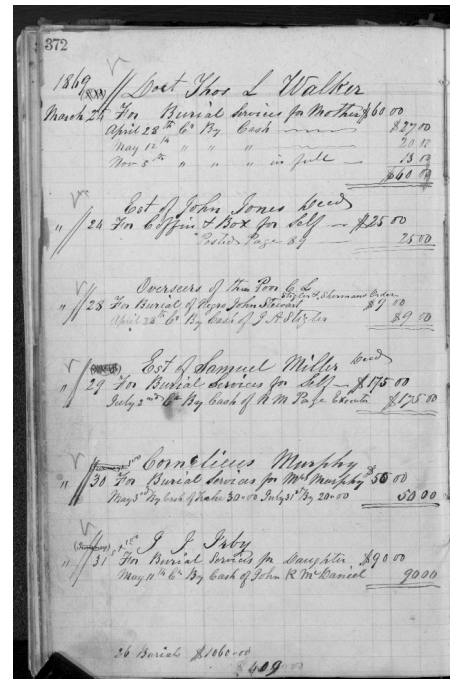 372
1869 Doct Thos L Walker
March 24 For Burial Services for Mother $60.00
April 28th Cr By Cash $27.00
May 12th " " " 20.00
Nov 5th " " " in full 13.00
$60.00
Est of John Jones Decd
" 24 For Coffin & Box for Self $25.00
Posted Page 89 25.00
Overseers of the Poor C. L.
Stigler & Shermans Order
" 28 For Burial of Negro John Stewart $9.00
April 24th Cr By Cash of J A Stigler $9.00
Est of Samuel Miller Decd
" 29 For Burial Services for Self $175.00
July 2nd Cr By Cash of R M Page Executor $175.00
Cornelieus Murphy
" 30 For Burial Services for Mrs Murphy $50.00
May 3rd By Cash of 30.00 July 31st By 20.00 50.00
J. J. Irby
" 31 For Burial Services for Daughter $90.00
May 11th Cr By Cash of John R McDaniel 90.00
26 Burials $1060.00
$409